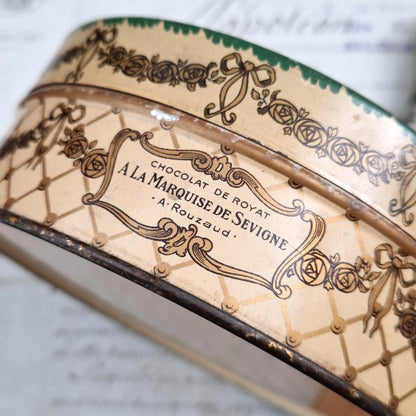 CHOCOLAT DE ROYAT
A LA MARQUISE DE SEVIGNE
· A · Rouzaud ·